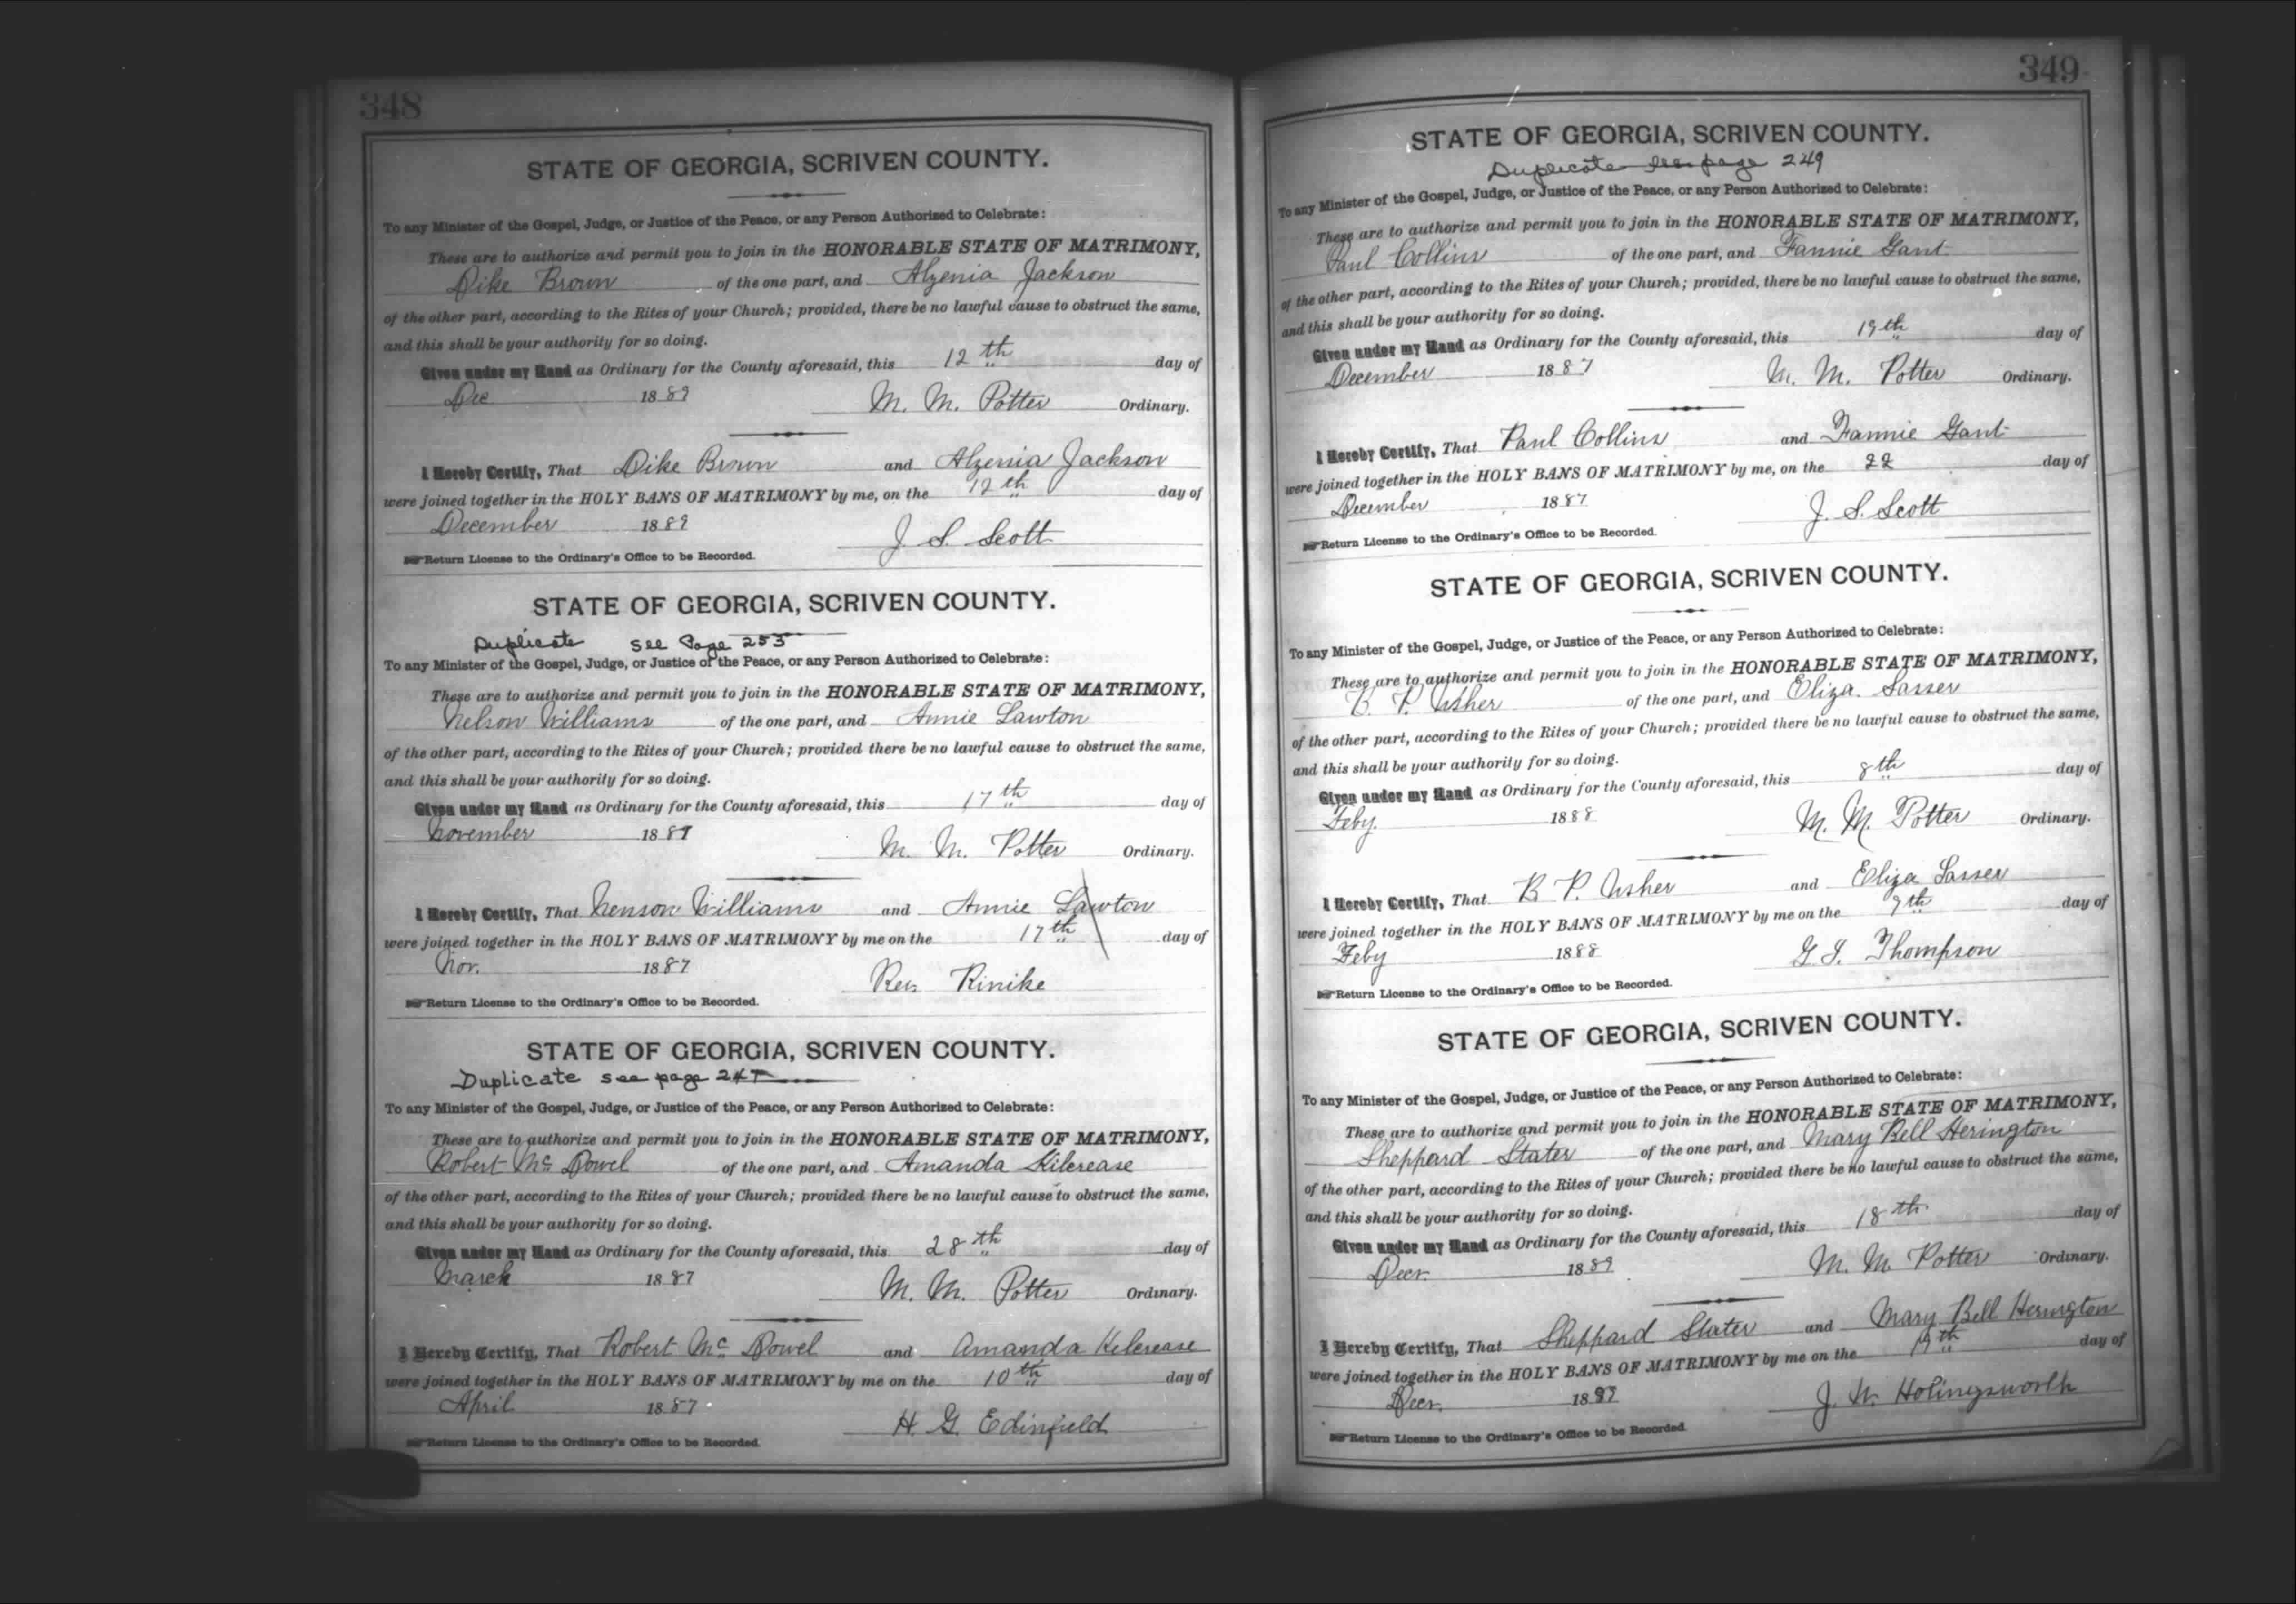 348
STATE OF GEORGIA, SCRIVEN COUNTY.
To any Minister of the Gospel, Judge, or Justice of the Peace, or any Person Authorized to Celebrate:
These are to authorize and permit you to join in the HONORABLE STATE OF MATRIMONY,
Dike Brown of the one part, and Alzenia Jackson
of the other part, according to the Rites of your Church; provided, there be no lawful cause to obstruct the same,
and this shall be your authority for so doing.
Given under my Hand as Ordinary for the County aforesaid, this 12th day of
Dec 1889 M. M. Potter Ordinary.
I Hereby Certify, That Dike Brown and Alzenia Jackson
were joined together in the HOLY BANS OF MATRIMONY by me, on the 12th day of
December 1889
J. S. Scott
Return License to the Ordinary's Office to be Recorded.
STATE OF GEORGIA, SCRIVEN COUNTY.
Duplicate see Page 253
To any Minister of the Gospel, Judge, or Justice of the Peace, or any Person Authorized to Celebrate:
These are to authorize and permit you to join in the HONORABLE STATE OF MATRIMONY,
Nelson Williams of the one part, and Annie Lawton
of the other part, according to the Rites of your Church; provided there be no lawful cause to obstruct the same,
and this shall be your authority for so doing.
Given under my Hand as Ordinary for the County aforesaid, this 17th day of
November 1887 M. M. Potter Ordinary.
I Hereby Certify, That Nenson Williams and Annie Lawton
were joined together in the HOLY BANS OF MATRIMONY by me on the 17th day of
Nov. 1887
Rev Rinike
Return License to the Ordinary's Office to be Recorded.
STATE OF GEORGIA, SCRIVEN COUNTY.
Duplicate see page
To any Minister of the Gospel, Judge, or Justice of the Peace, or any Person Authorized to Celebrate:
These are to authorize and permit you to join in the HONORABLE STATE OF MATRIMONY,
Robert Mc Dowel of the one part, and Amanda Kilcrease
of the other part, according to the Rites of your Church; provided there be no lawful cause to obstruct the same,
and this shall be your authority for so doing.
Given under my Hand as Ordinary for the County aforesaid, this 28th day of
March 1887 M. M. Potter Ordinary.
I Hereby Certify, That Robert Mc Dowel and Amanda Kelcrease
were joined together in the HOLY BANS OF MATRIMONY by me on the 10th day of
April 1887
H. G. Edinfield
Return License to the Ordinary's Office to be Recorded.
349
STATE OF GEORGIA, SCRIVEN COUNTY.
Duplicate see page 249
To any Minister of the Gospel, Judge, or Justice of the Peace, or any Person Authorized to Celebrate:
These are to authorize and permit you to join in the HONORABLE STATE OF MATRIMONY,
Paul Collins of the one part, and Fannie Gant
of the other part, according to the Rites of your Church; provided, there be no lawful cause to obstruct the same,
and this shall be your authority for so doing.
Given under my Hand as Ordinary for the County aforesaid, this 19th day of
December 1887 M. M. Potter Ordinary.
I Hereby Certify, That Paul Collins and Fannie Gant
were joined together in the HOLY BANS OF MATRIMONY by me, on the 22 day of
December 1887
J. S. Scott
Return License to the Ordinary's Office to be Recorded.
STATE OF GEORGIA, SCRIVEN COUNTY.
To any Minister of the Gospel, Judge, or Justice of the Peace, or any Person Authorized to Celebrate:
These are to authorize and permit you to join in the HONORABLE STATE OF MATRIMONY,
B. P. Usher of the one part, and Eliza. Sasser
of the other part, according to the Rites of your Church; provided there be no lawful cause to obstruct the same,
and this shall be your authority for so doing.
Given under my Hand as Ordinary for the County aforesaid, this 8th day of
Feby. 1888 M. M. Potter Ordinary.
I Hereby Certify, That B P. Usher and Eliza Sasser
were joined together in the HOLY BANS OF MATRIMONY by me on the 9th day of
Feby 1888
G. J. Thompson
Return License to the Ordinary's Office to be Recorded.
STATE OF GEORGIA, SCRIVEN COUNTY.
To any Minister of the Gospel, Judge, or Justice of the Peace, or any Person Authorized to Celebrate:
These are to authorize and permit you to join in the HONORABLE STATE OF MATRIMONY,
Sheppard Slater of the one part, and Mary Bell Herington
of the other part, according to the Rites of your Church; provided there be no lawful cause to obstruct the same,
and this shall be your authority for so doing.
Given under my Hand as Ordinary for the County aforesaid, this 18th day of
Decr. 1889 M. M. Potter Ordinary.
I Hereby Certify, That Sheppard Slater and Mary Bell Herington
were joined together in the HOLY BANS OF MATRIMONY by me on the 19th day of
Decr. 18
J. W. Holingsworth
Return License to the Ordinary's Office to be Recorded.